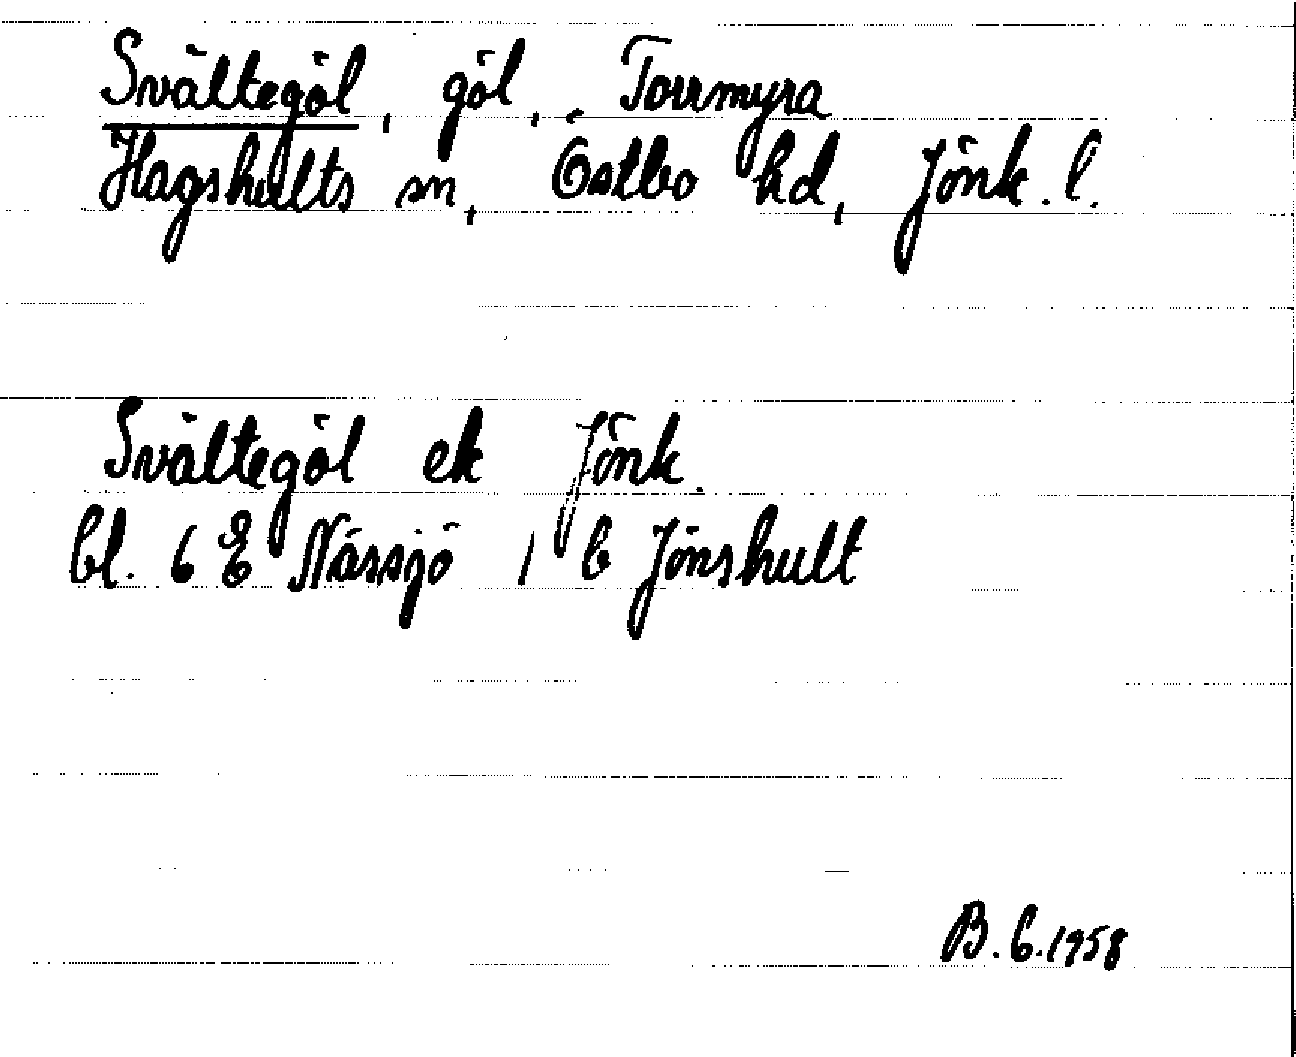 Svältegöl, göl, Torrmyra
Hagshults sn, Östbo hd, Jönk. l.
Svältegöl ek Jönk.
bl. 6 E Nässjö 1 b Jönshult
B. G. 1958